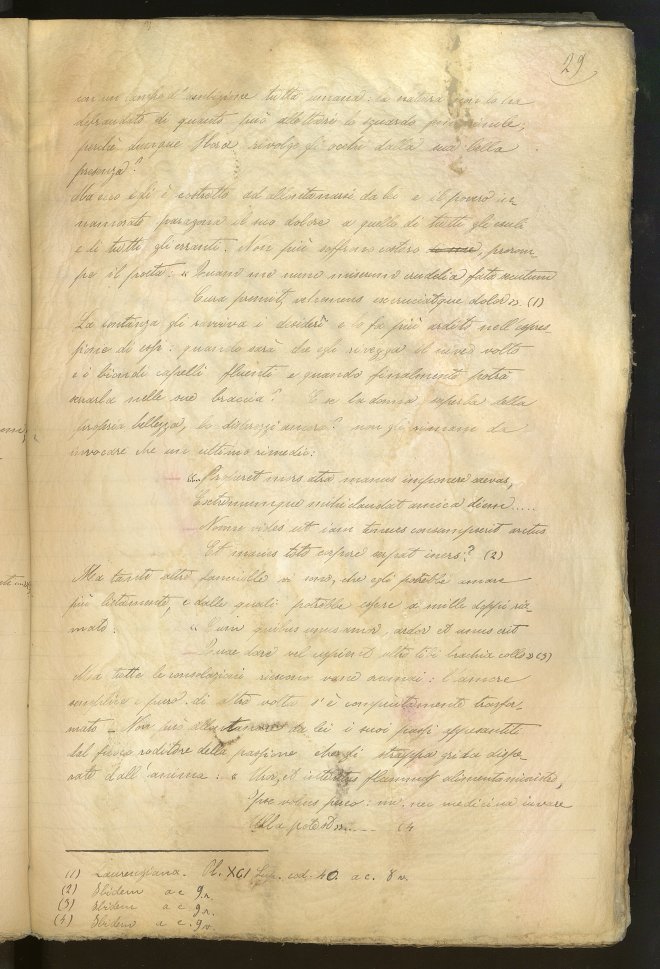 29
un un lampo d'ambizione tutta umana: la natura non lo ha
defraudato di quanto può allettare lo sguardo femminile,
perchè dunque Flora rivolge gli occhi dalla sua bella
presenza?
Ma ecco è costretto ad allontanarsi da lei e il povero in
namorato paragona il suo dolore a quello di tutti gli esuli
e di tutti gli erranti. Non più soffrono costoro, prorom-
pe il poeta: « Quam me nunc miserum crudelia fata
Cura premit, excruciatque dolor ». (1)
La lontananza gli ravviva i desideri e lo fa più ardito nell'espres-
sione di essi: quando sarà che egli rivegga il niveo volto
e i biondi capelli fluenti e quando finalmente potrà
serrarla nelle sue braccia? E se la donna superba della
propria bellezza, lo disprezzi ancora? non gli rimane da
invocare che un ultimo rimedio:
« Properet mors atra manus imponere saevas,
Extremumque mihi claudat amica diem....
Nonne vides ut iam tenues consumpserit artus
Et macies toto corpore serpat iners? (2)
Ma tante altre fanciulle vi sono, che egli potrebbe amare
più lietamente, e dalle quali potrebbe essere a mille doppi ria-
mato: « Cum quibus unus amor, ardor et unus erit
Quae dare vel cupiet ultro tibi brachia collo » (3)
Ma tutte le consolazioni riescono vane oramai: l'amore
semplice e puro di altra volta s'è compiutamente trasfor-
mato – Non può allontanare da lei i suoi passi appesantiti
dal fuoco roditore della passione che gli strappa grida dispe-
rate dall'anima: « Uror, et flammas
Ipse volens pereo: nec medicina iuvare
Ulla potest »...... (4
(1) Laurenziana. Pl. XCI Sup. cod. 40. a c. 8 v.
(2) Ibidem a c 9 r.
(3) Ibidem a c. 9 r.
(4) Ibidem a c. 9 v